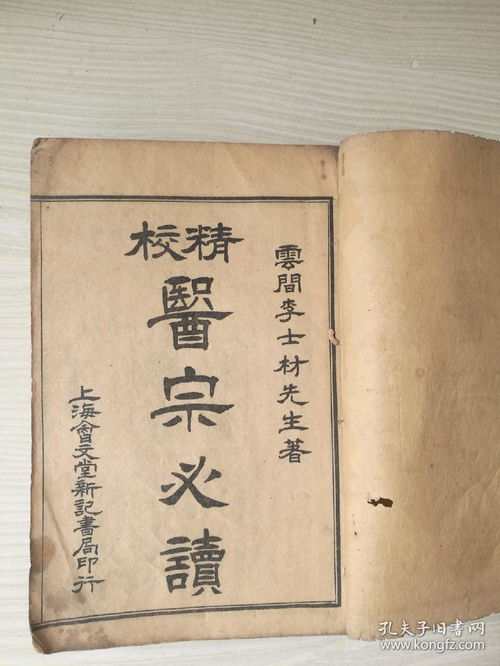 雲間李士材先生著
精校
醫宗必讀
上海會文堂新記書局印行
孔夫子旧书网
www.kongfz.com